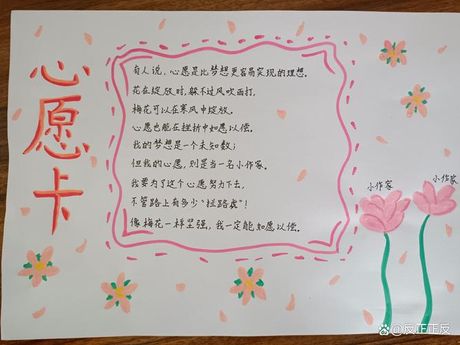 心愿卡
有人说,心愿是比梦想更容易实现的理想。
花在绽放时,躲不过风吹雨打,
梅花可以在寒风中绽放。
心愿也能在挫折中如愿以偿。
我的梦想是一个未知数;
但我的心愿,则是当一名小作家。
我要为了这个心愿努力下去,
不管路上有多少“拦路虎”!
像梅花一样坚强,我一定能如愿以偿。
小作家
小作家
百家号@反正正反